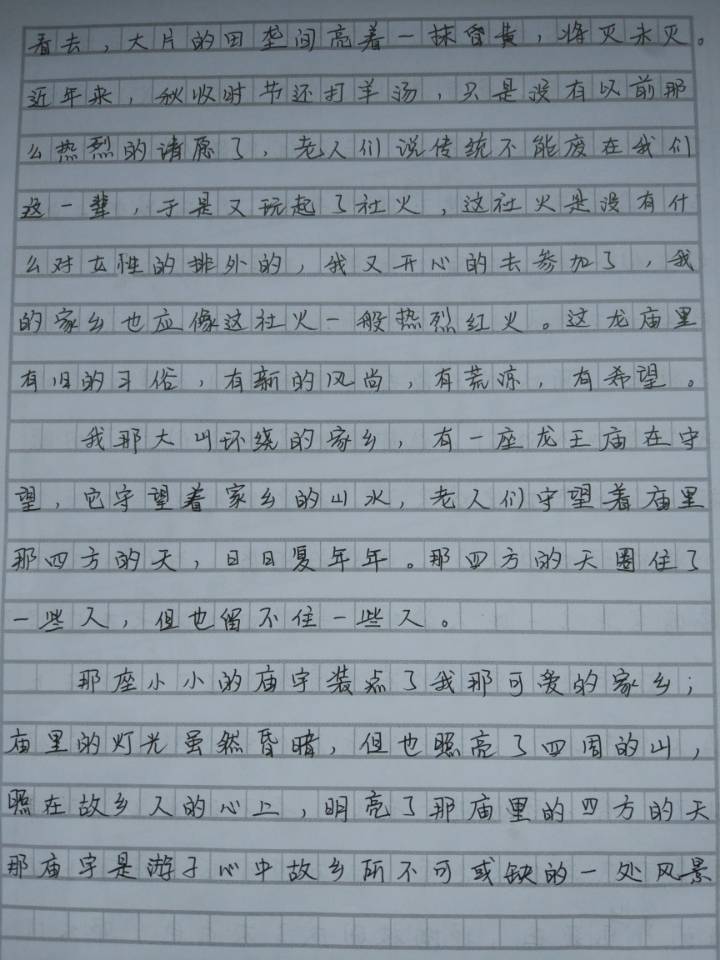 看去，大片的田垄间亮着一抹昏黄，将灭未灭。
近年来，秋收时节还打羊汤，只是没有以前那
么热烈的诸愿了，老人们说传统不能废在我们
这一辈，于是又玩起了社火，这社火是没有什
么对女性的排外的，我又开心的去参加了，我
的家乡也应像这社火一般热烈红火。这龙庙里
有旧的习俗，有新的风尚，有荒凉，有希望。
我那大山环绕的家乡，有一座龙王庙在守
望，它守望着家乡的山水，老人们守望着庙里
那四方的天，日日复年年。那四方的天圈住了
一些人，但也留不住一些人。
那座小小的庙宇装点了我那可爱的家乡；
庙里的灯光虽然昏暗，但也照亮了四周的山，
照在故乡人的心上，明亮了那庙里的四方的天
那庙宇是游子心中故乡所不可或缺的一处风景